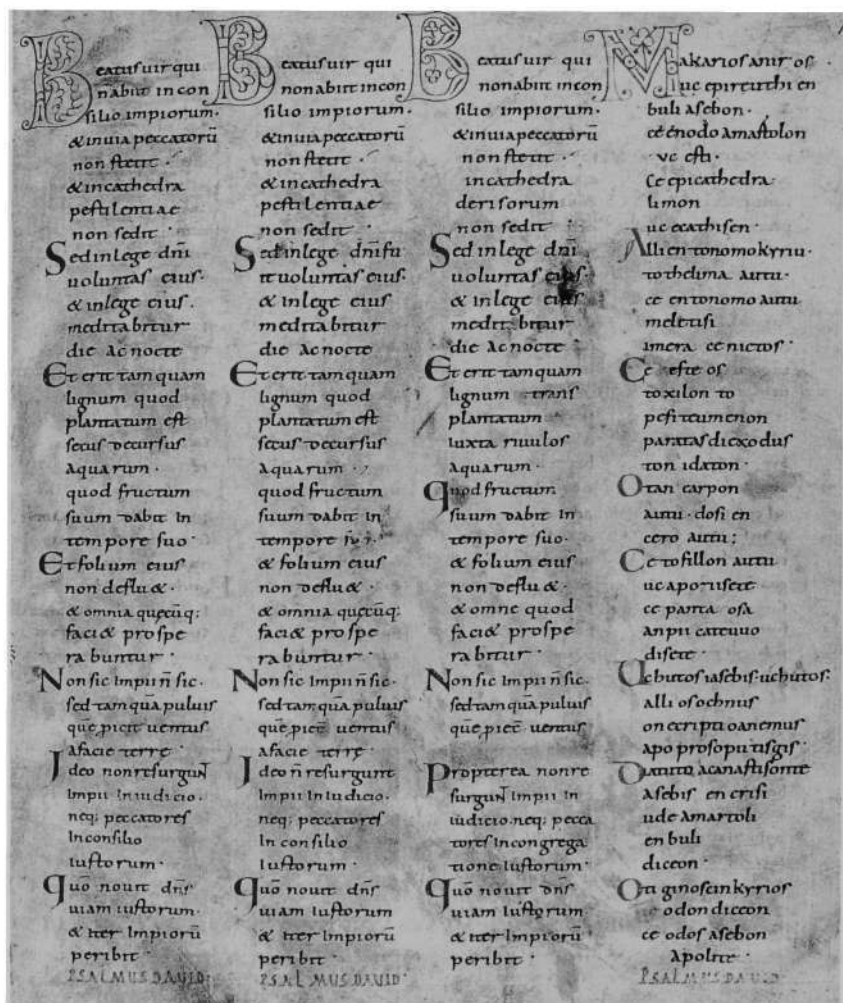 Beatus uir qui
n̄ abiit in con
silio impiorum·
& in uia peccatorū
non stetit ·
& in cathedra
pestilentiae
non sedit ·
Sed in lege dn̄i
uoluntas eius·
& in lege eius·
meditabitur
die ac nocte
Et erit tamquam
lignum quod
plantatum est
secus decursus
aquarum ·
quod fructum
suum dabit in
tempore suo·
Et folium eius
non deflu&·
& omnia quecūq;
faci& prospe
rabuntur ·
Non sic impii n̄ sic·
sed tamquā puluis
quē picit uentus
a facie terre ·
Ideo non resurgunt
impii in iudicio·
neq; peccatores
in consilio
iustorum ·
Quō nouit dn̄s
uiam iustorum·
& iter impiorū
peribit ·
PSALMUS DAVID·
Beatus uir qui
non abiit in con
silio impiorum·
& in uia peccatorū
non stetit ·
& in cathedra
pestilentiae
non sedit ·
Sed in lege dn̄i fu
it uoluntas eius·
& in lege eius
meditabitur
die ac nocte
Et erit tamquam
lignum quod
plantatum est
secus decursus
aquarum ·
quod fructum
suum dabit in
tempore
& folium eius
non deflu&·
& omnia quecūq;
faci& prospe
rabuntur ·
Non sic impii n̄ sic·
sed tamquā puluis
quē piec̄ uentus
a facie terre ·
Ideo n̄ resurgunt
impii in iudicio·
neq; peccatores
in consilio
iustorum ·
Quō nouit dn̄s
uiam iustorum
& iter impiorū
peribit ·
PSALMUS DAVID·
Beatus uir qui
non abiit in con
silio impiorum·
& in uia peccatorū
non stetit ·
in cathedra
derisorum
non sedit ·
Sed in lege dn̄i
uoluntas eius·
& in lege eius
meditabitur
die ac nocte
Et erit tamquam
lignum trans
plantatum
iuxta riuulos
aquarum ·
Quod fructum
suum dabit in
tempore suo·
& folium eius
non deflu&·
& omne quod
faci& prospe
rabitur ·
Non sic impii n̄ sic·
sed tamquā puluis
quē piec̄ uentus
Propterea non re
surgunt impii in
iudicio·neq; pecca
tores in congrega
tione iustorum ·
Quō nouit dn̄s
uiam iustorum·
& iter impiorū
peribit ·
Makarios anir os
uc epireuthi en
buli asebon·
ce enodo amastolon
uc esti·
Ce epi cathedra
limon
uc ecathisen·
All en to nomo kyriu·
to thelima autu·
ce en to nomo autu
meletisi
imera ce nictos ·
Ce este os
to xilon to
pefiteumenon
para tas diexodus
ton idaton ·
Otan carpon
autu · dosi en
cero autu ;
Ce to fillon autu
uc aporisete
ce panta osa
an pii cateuuo
disete ·
Uchutos i asebis·uchutos:
all i os o chnus
on ecripti o anemus
apo prosopu tis gis ·
Dia tuto ac anastisonte
asebis en crisi
ude amartoli
en buli
diceon ·
Oti ginoscin kyrios
odon diceon
ce odos asebon
apolite ·
PSALMUS DAVID